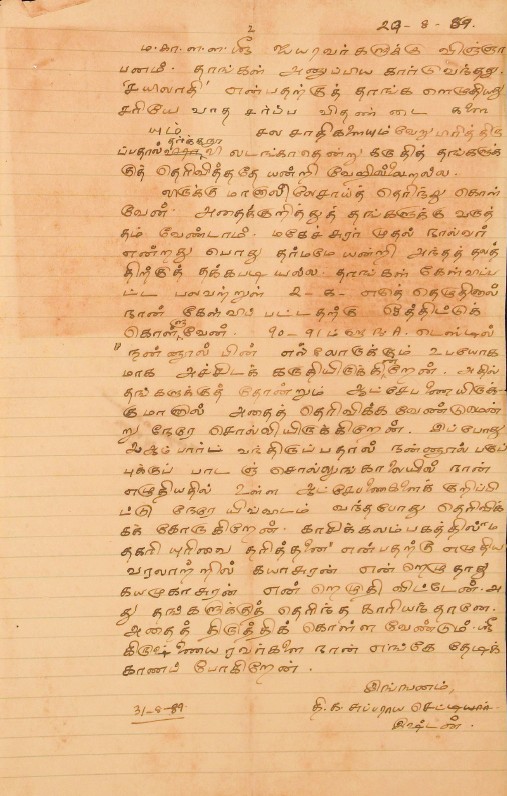 2
29-8-89.
ம-கா-ள-ள-ஸ்ரீ ஐயரவர்களுக்கு விஞ்ஞா
பனம். தாங்கள் அனுப்பிய கார்டு வந்தது.
என்பதற்குத் தாங்க ளெழுதியது
சரியே வாத சர்ப்ப
யும் சல சாதிகளையும் வேறு
தர்க்கறா
லடங்காதென்று கருதித் தங்களுக்
குத் தெரிவித்ததே யன்றி வேறில்லை.
தெரிந்து கொள்
வேன். அதைக்குறித்துத் தங்களுக்கு வருத்
தம் வேண்டாம். மகேச்சுரர் முதல் நால்வர்
என்றது பொது தர்மமே யன்றி அந்தத் தலத்
திற்குத் தக்கபடி யல்ல. தாங்கள் கேள்விப்
பட்ட பலவற்றுள் 2-க- எடுத் தெழுதினால்
நான் கேள்விப் பட்டதற்கு ஒத்திட்டுக்
கொள்ளுவேன். 90-91 ம் ௵ B.A. டெஸ்டில்
நன்னூல் பின் எல்லோருக்கும் உபயோக
மாக அச்சிடக் கருதியிருக்கிறேன். அதில்
தங்களுக்குத் தோன்றும் ஆட்சேபணையிருக்
குமானால் அதைத் தெரிவிக்க வேண்டுமென்
று நேரே சொல்லியிருக்கிறேன். இப்போது
வந்திருப்பதால் நன்னூல் படிப்
புக்குப் பாடஞ் சொல்லுங்காலையில் நான்
எழுதியதில் உள்ள ஆட்சேபணைகளைக் குறிப்பி
ட்டு நேரே யிவ்விடம் வந்தபோது தெரிவிக்
கக் கோருகிறேன். காசிக்கலம்பகத்தில் "ம
தகரி யுரிவை தரித்தனை" என்பதற்கு எழுதிய
வரலாற்றில் கயாசுரன் என் றெழுதாது
கயமுகாசுரன் என் றெழுதி விட்டேன். அ
து தங்களுக்குத் தெரிந்த காரியந்தானே.
அதைத் திருத்திக் கொள்ள வேண்டும். ஸ்ரீ
நான் எங்கே தேடிக்
காணப் போகிறேன்.
இங்ஙனம்,
தி.க. சுப்பராய செட்டியார்
இஷ்டன்.
31-8-89